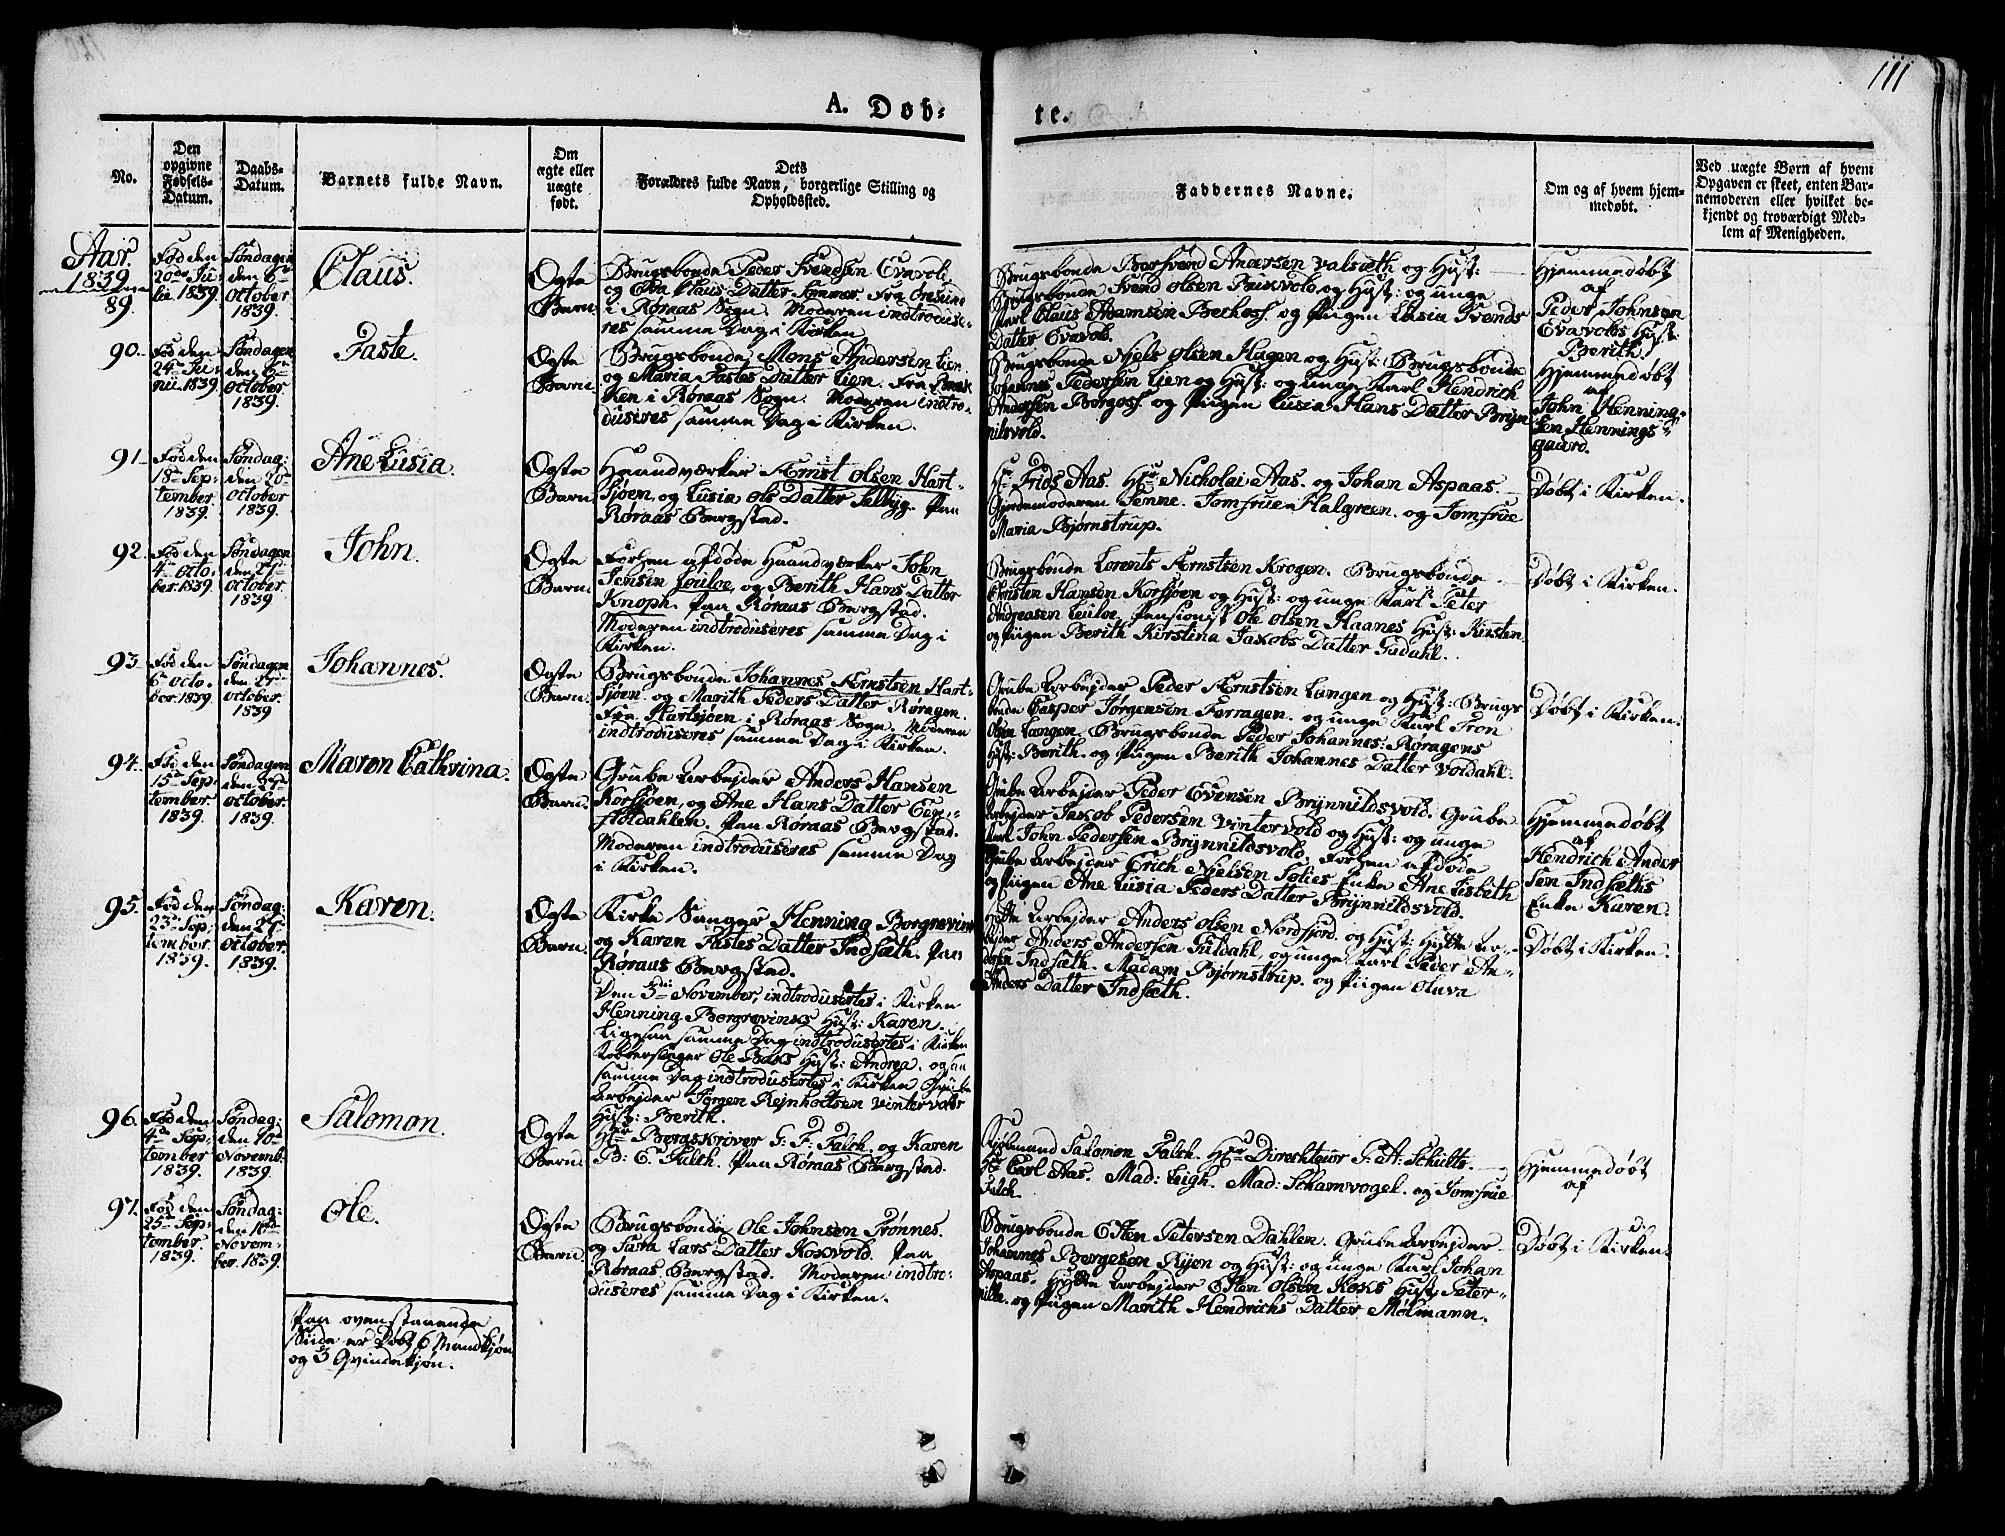 111
A. Døb-
te.
No.
Den
opgivne
Fødsels-
Datum.
Daabs-
Datum.
Barnets fulde Navn.
Om
ægte eller
uægte
født.
Dets
Forældres fulde Navn, borgerlige Stilling og
Opholdssted.
Faddernes Navne.
Om og af hvem hjem-
medøbt.
Ved uægte Børn af hvem
Opgaven er skeet, enten Bar-
nemoderen eller hvilket be-
kjendt og troværdigt Med-
lem af Menigheden.
Aar.
1839.
89.
Fød den
20de Ju-
lii 1839.
Søndagen
den 6te
October
1839.
Claus.
Ægte
Barn.
Brugsbonde Peder Svendsen Evavold
og Claus Datter Sommer. Fra
i Røraas Sogn. Moderen indtroduse-
res samme Dag i Kirken.
Brugsbonde Baršvend Andersen Valsæth og Hust:
Brugsbonde Svend Olsen Buxvold og Hust: og unge
Karl Claus Adamsen Beckosf. og Pigen Lusia Svends
Datter Evavold.
Hjemmedøbt
af
Peder Johnsen
Evavolds Hust:
Berith.
90.
Fød den
24de Ju-
nii 1839.
Søndagen
den 6te
October
1839.
Faste.
Ægte
Barn.
Brugsbonde Mons Andersen Lien
og Maria Fastes Datter Lien. Fra
i Røraas Sogn. Moderen indtro-
duseres samme Dag i Kirken.
Brugsbonde Niels Olsen Hagen og Hust: Brugsbonde
Johannes Pedersen Lien og Hust: og unge Karl Hendrich
Andersen Borgosf. og Pigen Lusia Hans Datter Bryn
nilsvold.
Hjemmedøbt
af
John Henning-
sen Hennings
gaard.
91.
Fød den
18de Sep-
tember
1839.
Søndag:
den 20de
October
1839.
Ane Lusia.
Ægte
Barn.
Haandværker Ærnst Olsen Hart-
sjøen, og Lusia Ols Datter Selbyg. Paa
Røraas Bergstad.
Hr Frids Aas. Hr Nicholai Aas. og Johan Aspaas.
Gjordemoderen Tenne. Jomfrue Halgreen. og Jomfrue
Maria Bjørnstrup.
Døbt i Kirken.
92.
Fød den
4de Octo-
ber. 1839.
Søndagen
den 27de
October.
1839
John.
Ægte
Barn.
Forhen afdøde Haandværker John
Jensen Louloe, og Berith Hans Datter
Knoph. Paa Røraas Bergstad.
Moderen indtroduseres samme Dag i
Kirken.
Brugsbonde Lorents Ærnstsen Krogen. Brugsbonde
Christen Hansen Korssjøen og Hust: og unge Karl Peter
Andreasen Louloe. Pensionist Ole Olsen Haanes Hust: Kirsten.
og Pigen Berith Kirstina Jakobs Datter Guldahl.
Døbt i Kirken.
93.
Fød den
6te Octo-
ber. 1839.
Søndagen
den 27de
October.
1839
Johannes.
Ægte
Barn.
Brugsbonde Johannes Ærnstsen Hart-
sjøen. og Marith Peders Datter Røragen.
Fra Hartsjøen i Røraas Sogn. Moderen
indtroduseres samme Dag i Kirken.
Grube Arbejder Peder Ærnstsen Langen og Hust: Brugs
bonde Casper Jørgensen Ferragen. og unge Karl Tron
Olsen Langen. Brugsbonde Peder Johannes: Røragens
Hust: Berith. og Pigen Berith Johannes Datter Voldahl.
Døbt i Kirken.
94.
Fød den
15de Sep-
tember.
1839.
Søndagen
den 27de
October.
1839.
Maren Cathrina.
Ægte
Barn.
Grube Arbejder Anders Hansen
Korssjøen, og Ane Hans Datter
Paa Røraas Bergstad.
Moderen indtroduseres samme Dag
i Kirken.
Grube Arbejder Peder Evensen Brynnildsvold. Grube
Arbejder Jakob Pedersen Vintervold og Hust: og unge
Karl John Pedersen Brynnildsvold. Forhen afdøde
Grube Arbejder Erich Nielsen Enke Ane Lisbeth
og Pigen Ane Lusia Peders Datter Brynnildsvold.
Hjemmedøbt
af
Hendrich Ander
sen Indsæths
Enke Karen.
95.
Fød den
23de Sep-
tember
1839.
Søndag:
den 27de
October.
1839.
Karen.
Ægte
Barn.
Kirke Sanger Henning Borgrevink
og Karen Fastes Datter Indsæth. Paa
Røraas Bergstad.
Den 3die November, indtrodusertes i Kirken
Henning Borgrevinks Hust: Karen.
Ligesaa samme Dag indtrodusertes i Kirken
Kobberslager Ole Baks Hust: Andrea. og
samme Dag indtrodusertes i Kirken Grube
Arbejder Jørgen Rejnholtsen Vintervolds
Hust: Berith.
Hytte Arbejder Anders Olsen Nordfjord. og Hust: Hytte Ar-
bejder Anders Andersen Guldahl, og unge Karl Peder An-
dersen Indsæth. Madam Bjørnstrup. og Pigen Olava
Anders Datter Indsæth.
Døbt i Kirken.
96.
Fød den
4de Sep-
tember
1839.
Søndag:
den 10de
Novemb:
1839.
Salomon.
Ægte
Barn.
Hr Bergskriver G: F: Falch, og Karen
B: E. Falch. Paa Røraas Bergstad.
Kjøbmand Salomon Falch. Hr Direchteur P: A: Schults.
Hr Carl Aas. Mad: Leigh. Mad: Schamvogel. og Jomfrue
Falch.
Hjemmedøbt
af
97.
Fød den
25de Sep-
tember.
1839.
Søndag:
den 10de
Novem-
ber. 1839.
Ole.
Ægte
Barn.
Brugsbonde Ole Johnsen Trønnes.
og Sara Lars Datter Koxvold. Paa
Røraas Bergstad. Moderen indtro-
duseres samme Dag i Kirken.
Brugsbonde Esten Petersen Dahlen. Grube Arbejder
Johannes Bergesen Ryen og Hust: og unge Karl Johan
Aspaas. Hytte Arbejder Esten Olsen Koxs Hust: Peter-
nille. og Pigen Marith Hendrichs Datter Mølmann.
Døbt i Kirken.
Paa ovenstaaende
Side er Døbt 6 Mandkjøn
og 3 Qvindekjøn.